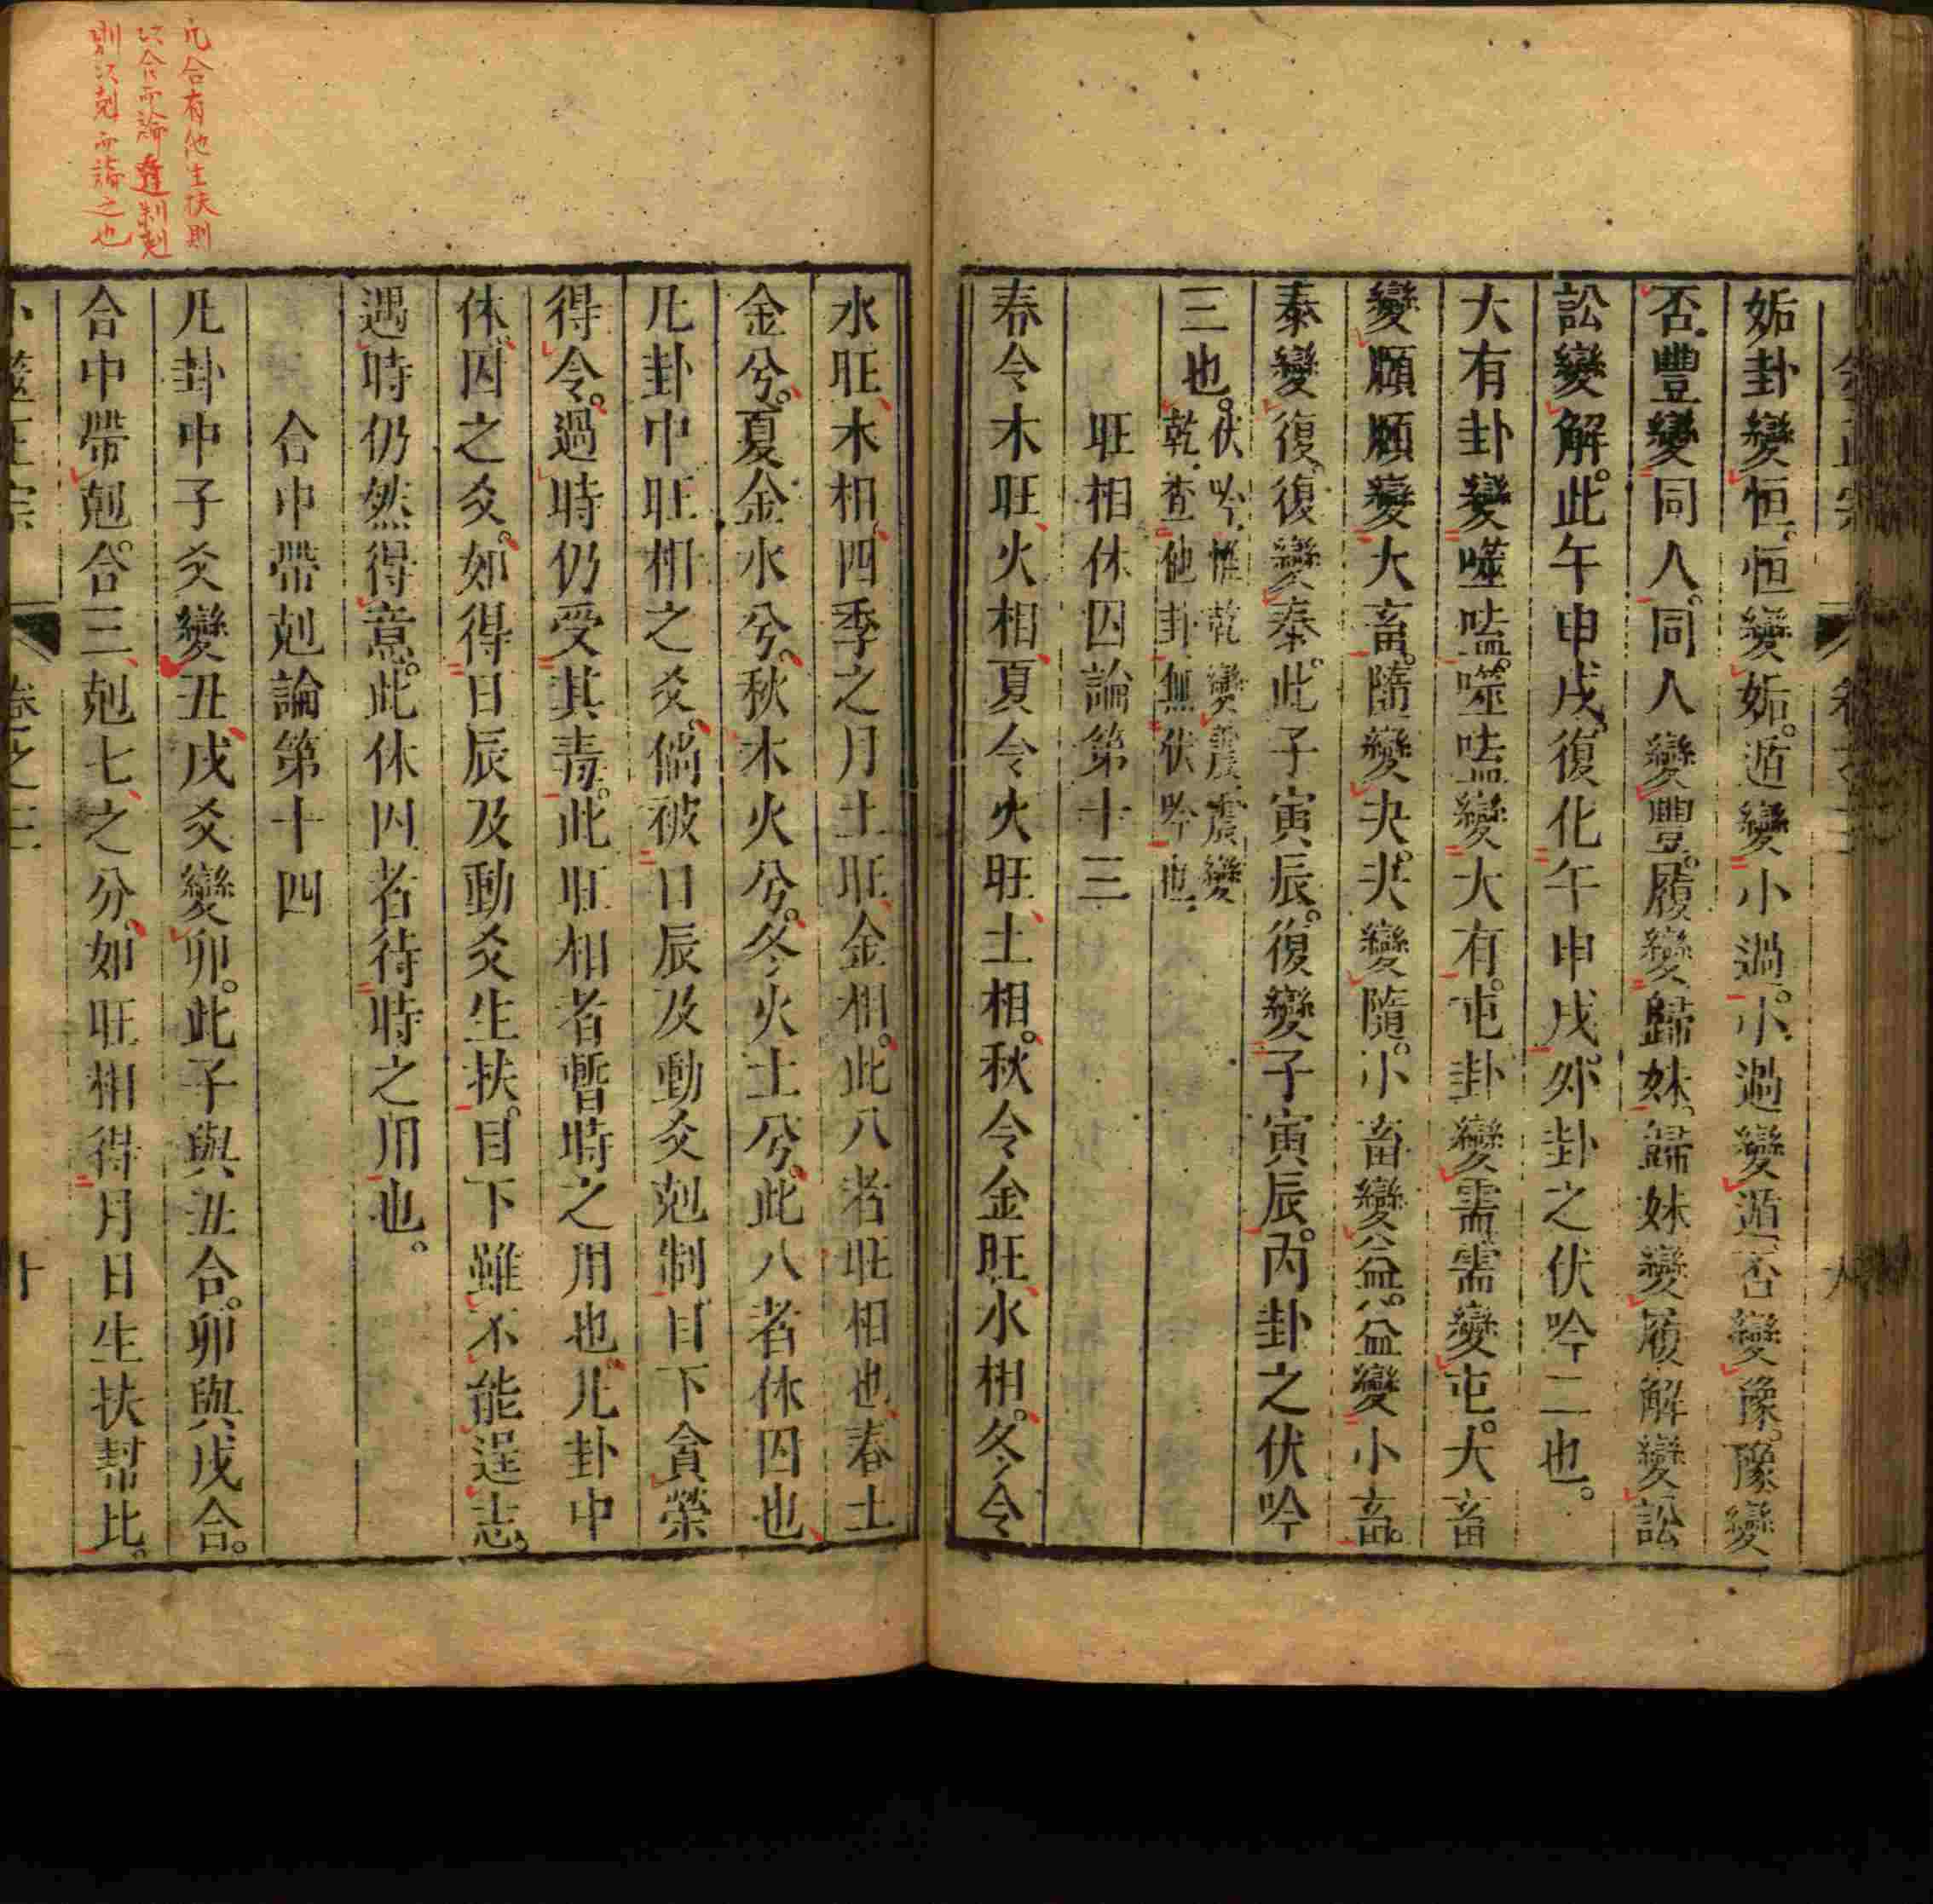 姤卦變恒。恒變姤。遁變小過。小過變遁。否變豫。豫變
否。豐變同人。同人變豐。履變歸妹。歸妹變履。解變訟
訟變解。此午申戌。復化午申戌。外卦之伏吟二也。
大有卦變噬嗑。噬嗑變大有。屯卦變需。需變屯。大畜
變頤。頤變大畜。隨變夬。夬變隨。小畜變益。益變小畜。
泰變復。復變泰。此子寅辰。復變子寅辰。內卦之伏吟
三也。伏吟惟乾變震震變
乾查他卦無伏吟也
旺相休囚論第十三
春令木旺、火相、夏令火旺、土相。秋令金旺、水相。冬令
水旺、木相、四季之月土旺、金相。此八者旺相也、春土
金兮。夏金水兮。秋木火兮。冬火土兮。此八者休囚也、
凡卦中旺相之爻。倘被日辰及動爻剋制目下貪榮
得令。過時仍受其毒。此旺相者暫時之用也。凡卦中
休囚之爻。如得日辰及動爻生扶。目下雖不能逞志、
遇時仍然得意。此休囚者待時之用也。
合中帶剋論第十四
凡卦中子爻變丑、戌爻變卯。此子與丑合。卯與戌合。
合中帶剋。合三、剋七、之分、如旺相得月日生扶幫比。
卜筮正宗 卷之三 十
凡合有他生扶則
以合而論逢制剋
則以剋而論之也